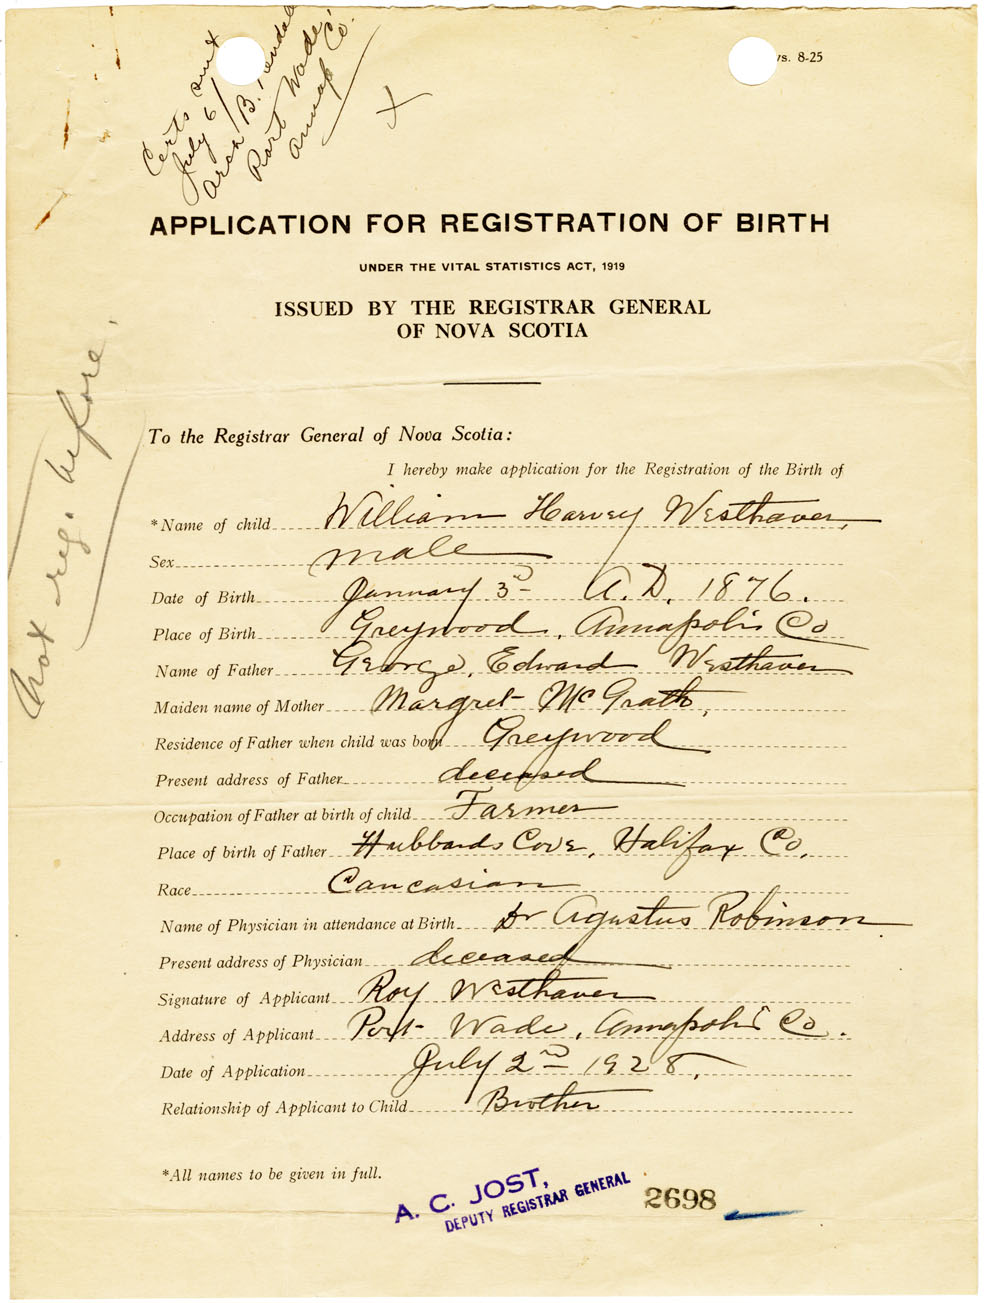 Certs sent
July 6/
Arch B.
Port Wade
Annap Co.
vs. 8-25
APPLICATION FOR REGISTRATION OF BIRTH
UNDER THE VITAL STATISTICS ACT, 1919
ISSUED BY THE REGISTRAR GENERAL
OF NOVA SCOTIA
Not reg. before.
To the Registrar General of Nova Scotia:
I hereby make application for the Registration of the Birth of
*Name of child William Harvey Westhaver,
Sex male
Date of Birth January 3rd A.D. 1876.
Place of Birth Greywood, Annapolis Co
Name of Father George, Edward Westhaver
Maiden name of Mother Margret McGrath,
Residence of Father when child was born Greywood
Present address of Father deceased
Occupation of Father at birth of child Farmer
Place of birth of Father Hubbards Cove, Halifax Co,
Race Cancasian
Name of Physician in attendance at Birth Dr Agustus Robinson.
Present address of Physician deceased
Signature of Applicant Roy Westhaver
Address of Applicant Port Wade, Annapolis Co.
Date of Application July 2nd 1928.
Relationship of Applicant to Child Brother
*All names to be given in full.
A. C. JOST,
DEPUTY REGISTRAR GENERAL
2698